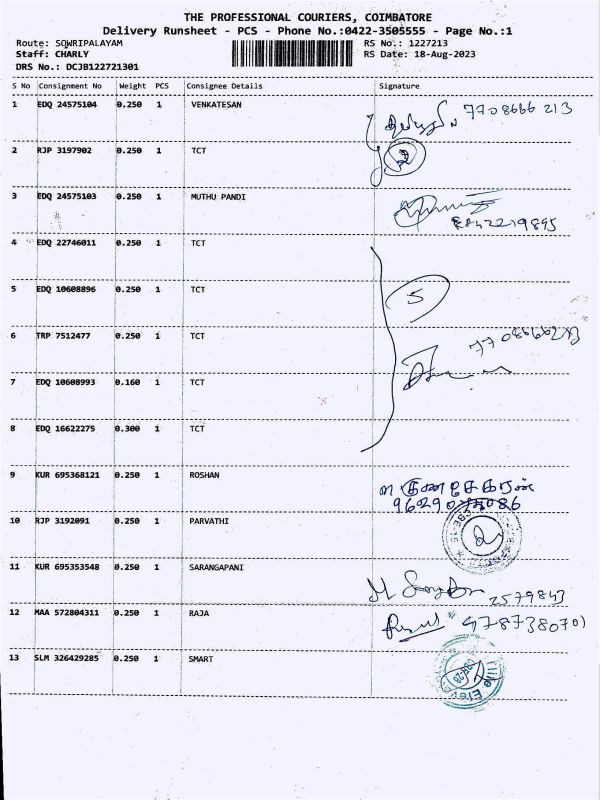 THE PROFESSIONAL COURIERS, COIMBATORE
Delivery Runsheet - PCS - Phone No.:0422-3505555 - Page No.:1
Route: SOWRIPALAYAM RS No.: 1227213
Staff: CHARLY RS Date: 18-Aug-2023
DRS No.: DCJB122721301
S No Consignment No Weight PCS Consignee Details Signature
1 EDQ 24575104 0.250 1 VENKATESAN 7708666213
2 RJP 3197902 0.250 1 TCT 2
3 EDQ 24575103 0.250 1 MUTHU PANDI
4 EDQ 22746011 0.250 1 TCT
5 EDQ 10608896 0.250 1 TCT 5
6 TRP 7512477 0.250 1 TCT
7 EDQ 10608993 0.160 1 TCT
8 EDQ 16622275 0.300 1 TCT
9 KUR 695368121 0.250 1 ROSHAN
10 RJP 3192091 0.250 1 PARVATHI
11 KUR 695353548 0.250 1 SARANGAPANI 2579843
12 MAA 572804311 0.250 1 RAJA 9787380701
13 SLM 326429285 0.250 1 SMART